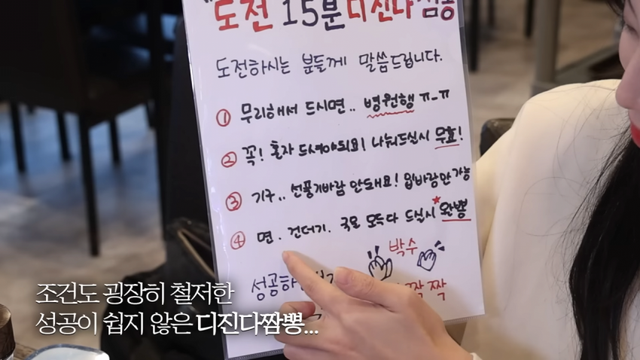 "도전 15분 디진다짬뽕
도전하시는 분들께 말씀드립니다.
① 무리해서 드시면.. 병원행 ㅠ_ㅠ
② 꼭! 혼자 드셔야되요! 나눠드실시 무효!
③ 기구.. 선풍기바람 안돼요! 입바람만 가능
④ 면. 건더기. 국물 모두다 드실시 완뽕
박수
성공하
짝 짝
조건도 굉장히 철저한
성공이 쉽지 않은 디진다짬뽕...